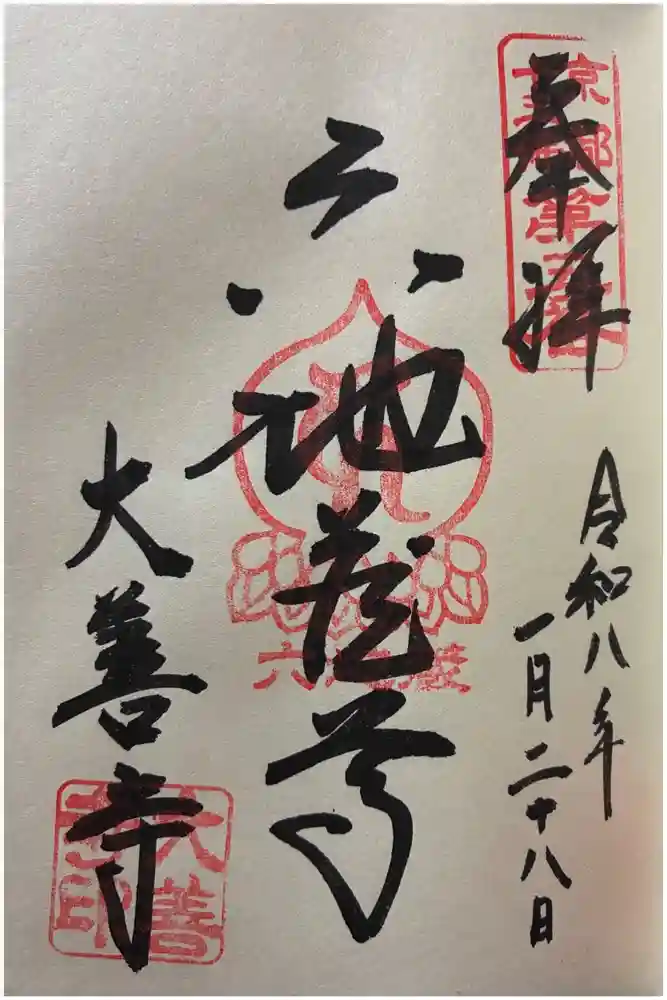 奉拝
令和八年
一月二十八日
六地蔵尊
大善寺
京都第一番
六地蔵
大善寺印